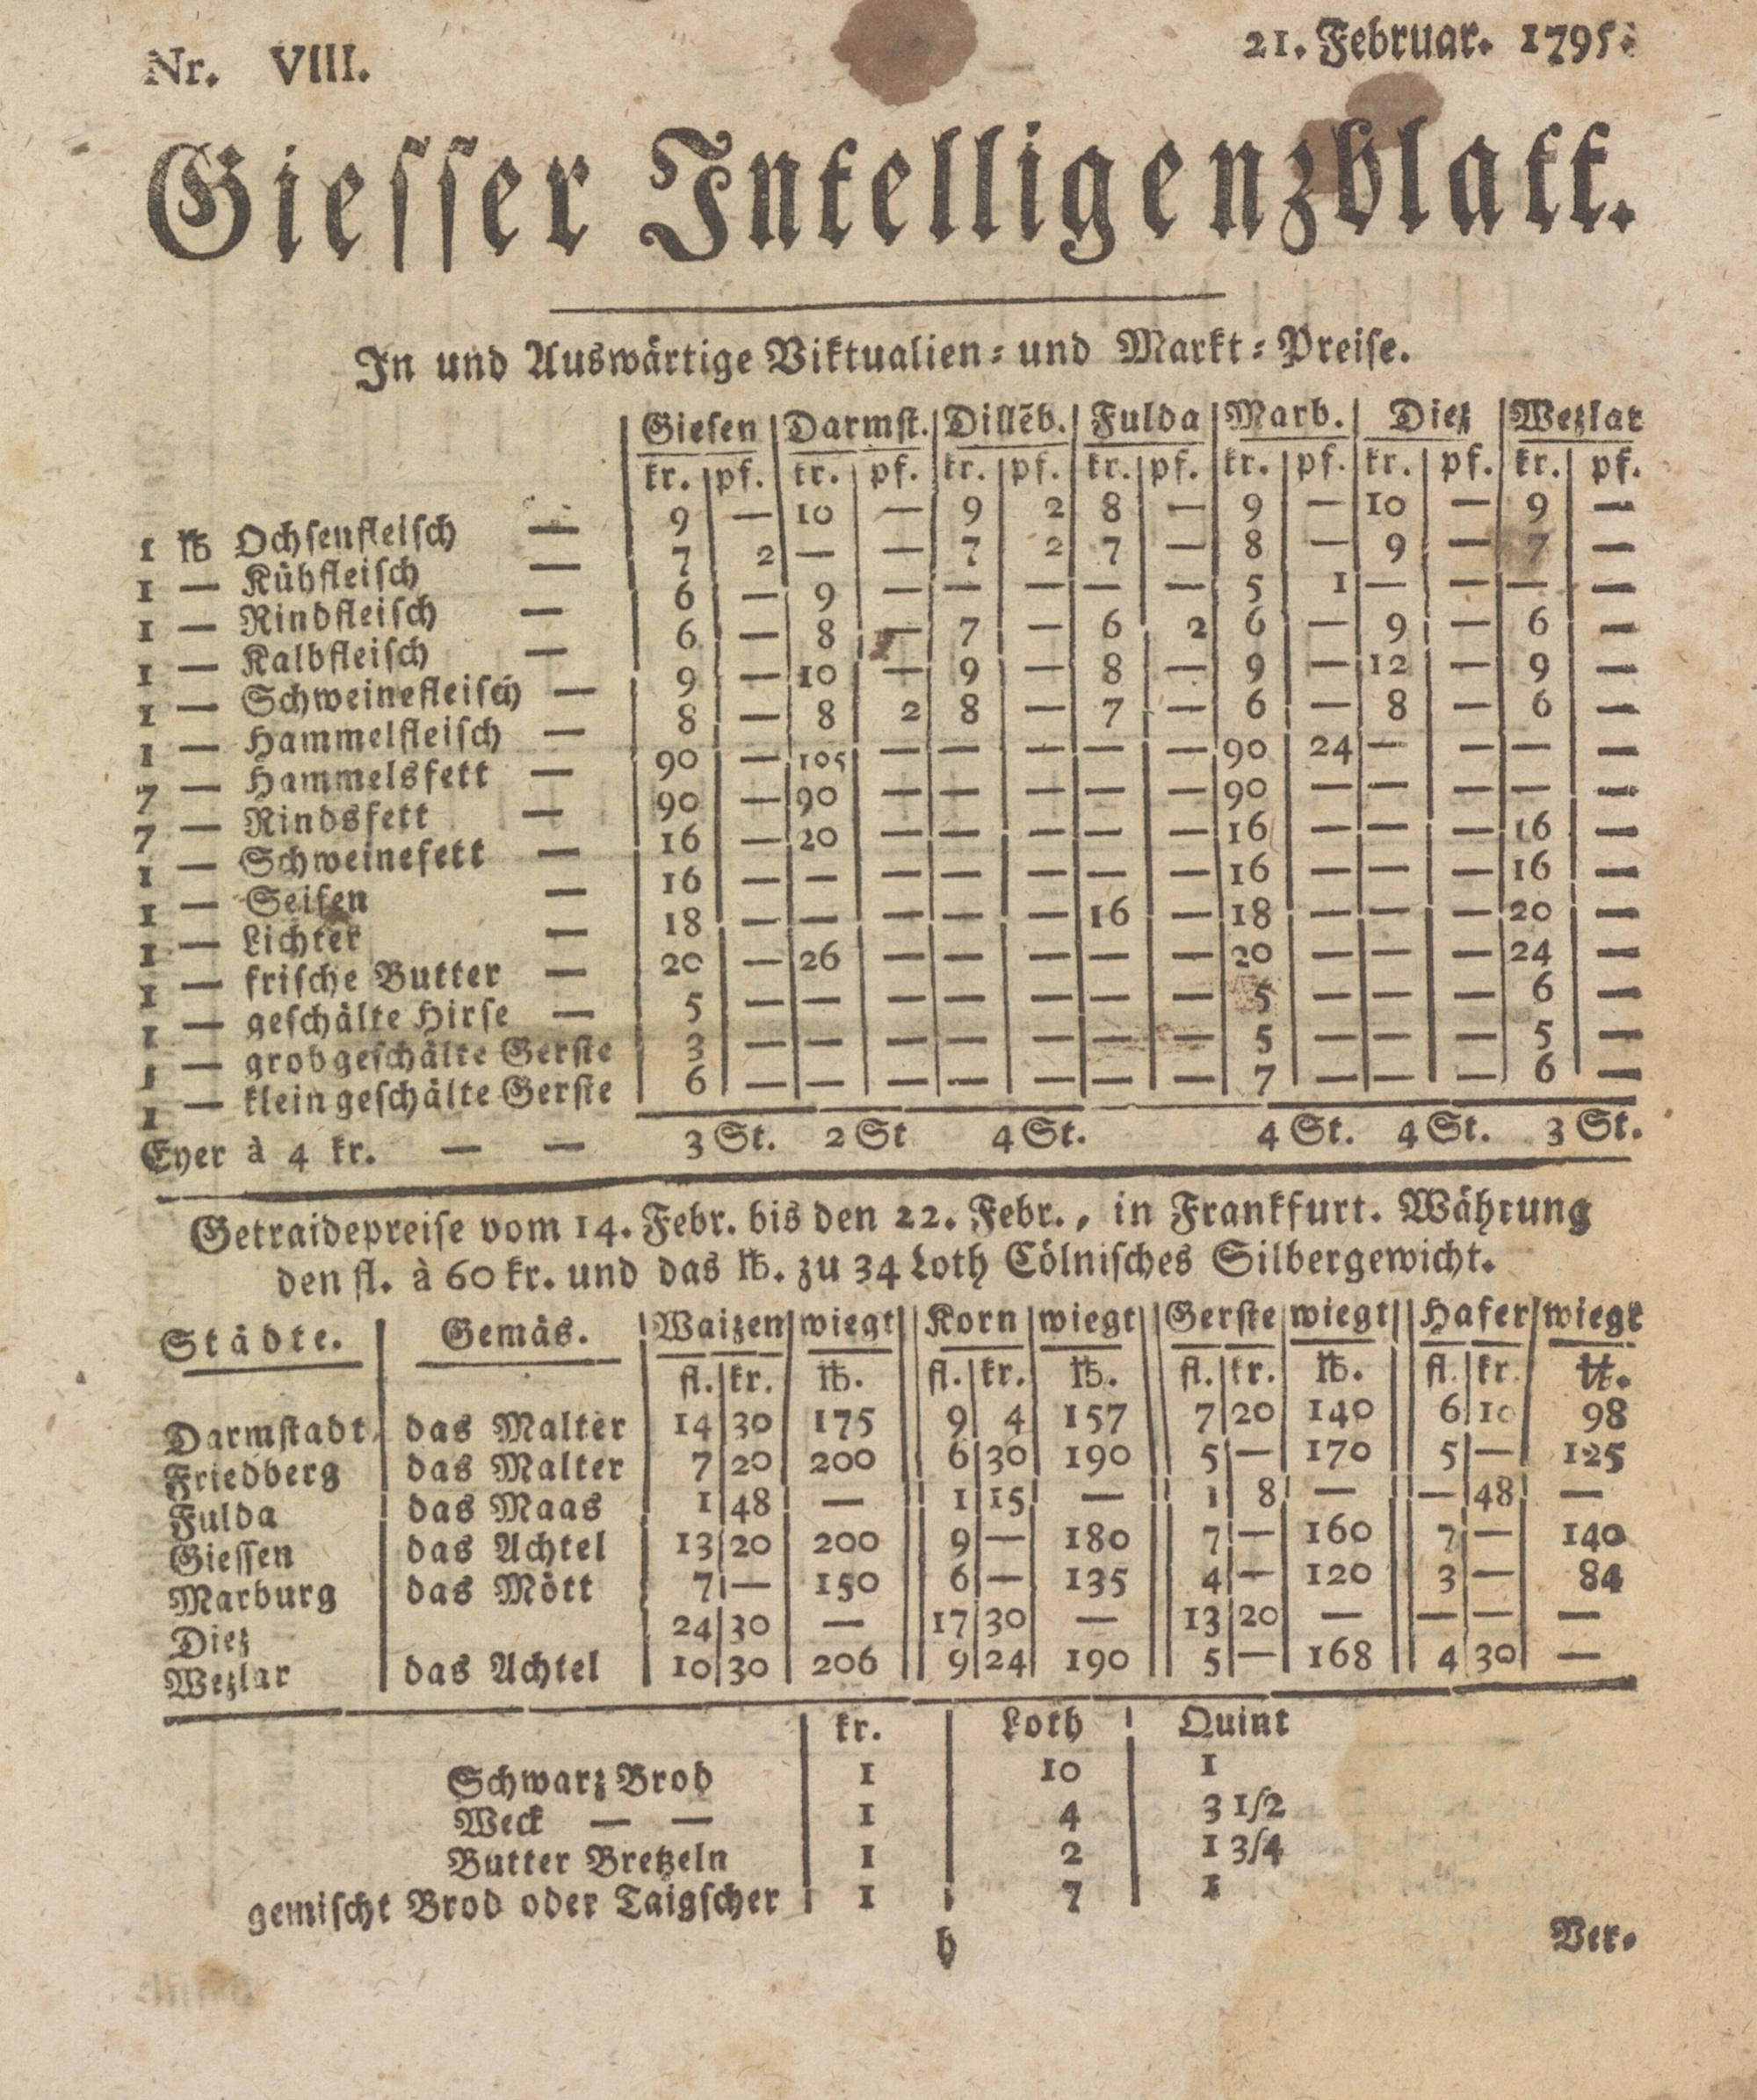 Nr. VIII. 21. Februar. 1795.
Giesser Intelligenzblatt.
In und Auswärtige Viktualien- und Markt-Preise.
Giesen Darmst. Dillēb. Fulda Marb. Diez Wezlar
kr. pf. kr. pf. kr. pf. kr. pf. kr. pf. kr. pf. kr. pf.
1 ℔ Ochsenfleisch — 9 — 10 — 9 2 8 — 9 — 10 — 9 —
1 — Kühfleisch — 7 2 — — 7 2 7 — 8 — 9 — 7 —
1 — Rindfleisch — 6 — 9 — — — — — 5 1 — — — —
1 — Kalbfleisch — 6 — 8 — 7 — 6 2 6 — 9 — 6 —
1 — Schweinefleisch — 9 — 10 — 9 — 8 — 9 — 12 — 9 —
1 — Hammelfleisch — 8 — 8 2 8 — 7 — 6 — 8 — 6 —
7 — Hammelsfett — 90 — 105 — — — — — 90 24 — — — —
7 — Rindsfett — 90 — 90 — — — — — 90 — — — — —
1 — Schweinefett — 16 — 20 — — — — — 16 — — — 16 —
1 — Seifen — 16 — — — — — — — 16 — — — 16 —
1 — Lichter — 18 — — — — — 16 — 18 — — — 20 —
1 — frische Butter — 20 — 26 — — — — — 20 — — — 24 —
1 — geschälte Hirse — 5 — — — — — — — 5 — — — 6 —
1 — grobgeschälte Gerste 3 — — — — — — — 5 — — — 5 —
1 — klein geschälte Gerste 6 — — — — — — — 7 — — — 6 —
Eyer à 4 kr. — — 3 St. 2 St 4 St. 4 St. 4 St. 3 St.
Getraidepreise vom 14. Febr. bis den 22. Febr., in Frankfurt. Währung
den fl. à 60 kr. und das ℔. zu 34 Loth Cölnisches Silbergewicht.
Städte. Gemäs. Waizen wiegt Korn wiegt Gerste wiegt Hafer wiegt
fl. kr. ℔. fl. kr. ℔. fl. kr. ℔. fl. kr. ℔.
Darmstadt das Malter 14 30 175 9 4 157 7 20 140 6 10 98
Friedberg das Malter 7 20 200 6 30 190 5 — 170 5 — 125
Fulda das Maas 1 48 — 1 15 — 1 8 — — 48 —
Giessen das Achtel 13 20 200 9 — 180 7 — 160 7 — 140
Marburg das Mött 7 — 150 6 — 135 4 — 120 3 — 84
Diez 24 30 — 17 30 — 13 20 — — — —
Wezlar das Achtel 10 30 206 9 24 190 5 — 168 4 30 —
kr. Loth Quint
Schwarz Brod 1 10 1
Weck — — 1 4 3 1/2
Butter Bretzeln 1 2 1 3/4
gemischt Brod oder Taigscher 1 7 1
h Ver-